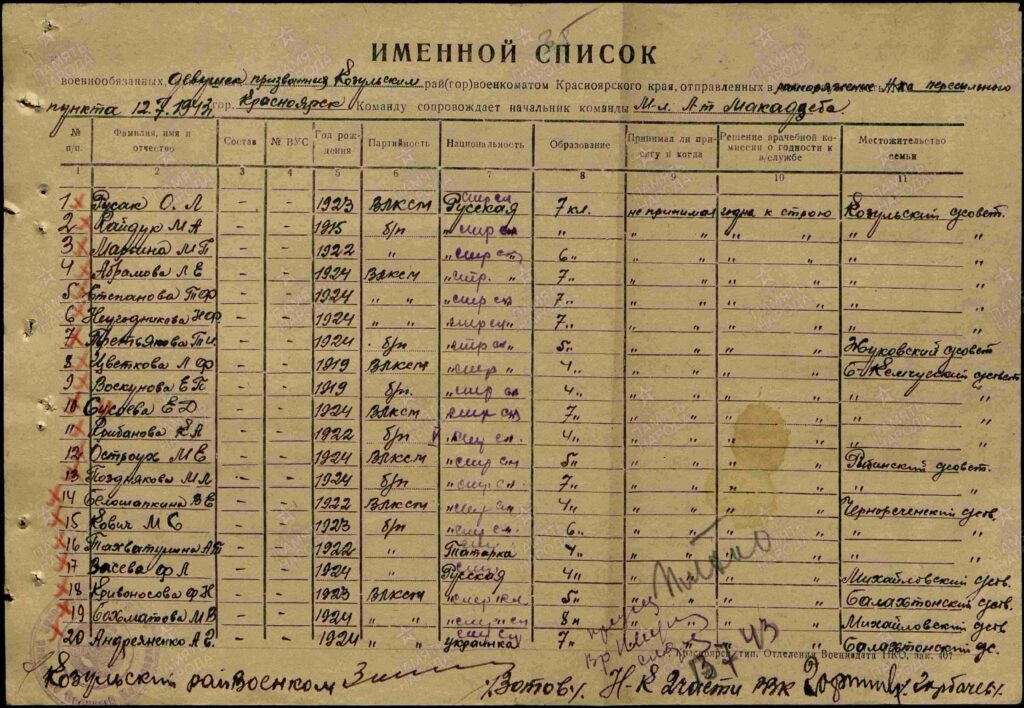 ИМЕННОЙ СПИСОК
военнообязанных, девушек призванных Козульским рай(гор)военкоматом Красноярского края, отправленных в распоряжение Н-ка пересыльного
пункта 12.7.1943 гор. Красноярск Команду сопровождает начальник команды Мл. Л-т
№ п/п. Фамилия, имя и отчество Состав № ВУС Год рождения Партийность Национальность Образование Принимал ли присягу и когда Решение врачебной комиссии о годности к в/службе Местожительство семьи
1 2 3 4 5 6 7 8 9 10 11
1 Русак О. Л - - 1923 ВЛКСМ Русская 7 кл. не принимал годна к строю Козульский с/совет.
2 Кайдук М А - - 1915 б/п " " " " " "
3 Марьина М П - - 1922 " " " 6 " " " " " "
4 Абрамова Л Е - - 1924 ВЛКСМ " " 7 " " " " " "
5 Степанова Т Ф - - 1924 " " " 7 " " " " " "
6 Неугодникова Н Ф - - 1924 " " " " 7 " " " " " "
7 Третьякова Т И - - 1924 б/п " " 5 " " " " " Жуковский с/совет
8 Цветкова Л Ф - - 1919 ВЛКСМ " " 4 " " " " " Б-Кемчугский с/совет
9 Воскунова Е П - - 1919 б/п " 4 " " " " " "
10 Сусоева Е Д - - 1924 ВЛКСМ 7 " " " " " "
11 Грибанова К А - - 1922 б/п " 4 " " " " " "
12 Остроух М Е - - 1924 ВЛКСМ " 5 " " " " " Рыбинский с/совет.
13 Позднякова М Л - - 1924 б/п " 7 " " " " " "
14 Белошапкина В Е - - 1922 ВЛКСМ " 4 " " " " " Чернореченский с/сов.
15 Кович М С - - 1923 б/п " 6 " " " " " "
16 - - 1922 " Татарка 4 " " " " " "
17 Васева Ф Л - - 1924 " Русская 4 " " " Михайловский с/сов.
18 Кривоносова Ф Н - - 1923 ВЛКСМ " 5 " " " Балахтонский с/сов.
19 Бахматова М В - - 1924 " " " 8 " " " Михайловский с/сов
20 Андреенко А Е. - - 1924 " " украинка 7 " " " Балахтонский с/с.
13 7 43
Красноярск, тип. Отделения Воениздата НКО, зак. 407
Козульский райвоенком /Зотов/. Н-к 2 части РВК /Горбачев/.